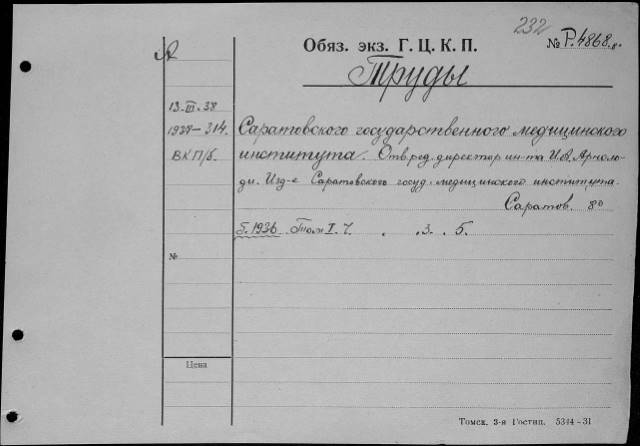 232
А
Обяз. экз. Г. Ц. К. П.
№ Р.4868.
Труды
13.III.38
1938-314.
ВКП/б.
Саратовского государственного медицинского
института. Отв. ред. директор ин-та И.А. Арноль-
ди. Изд-е Саратовского госуд. медицинского института.
Саратов. 8°
Г. 1936. Том I. ч. . . 3. 5.
№
Цена
Томск. 3-я Гостип. 5344-31